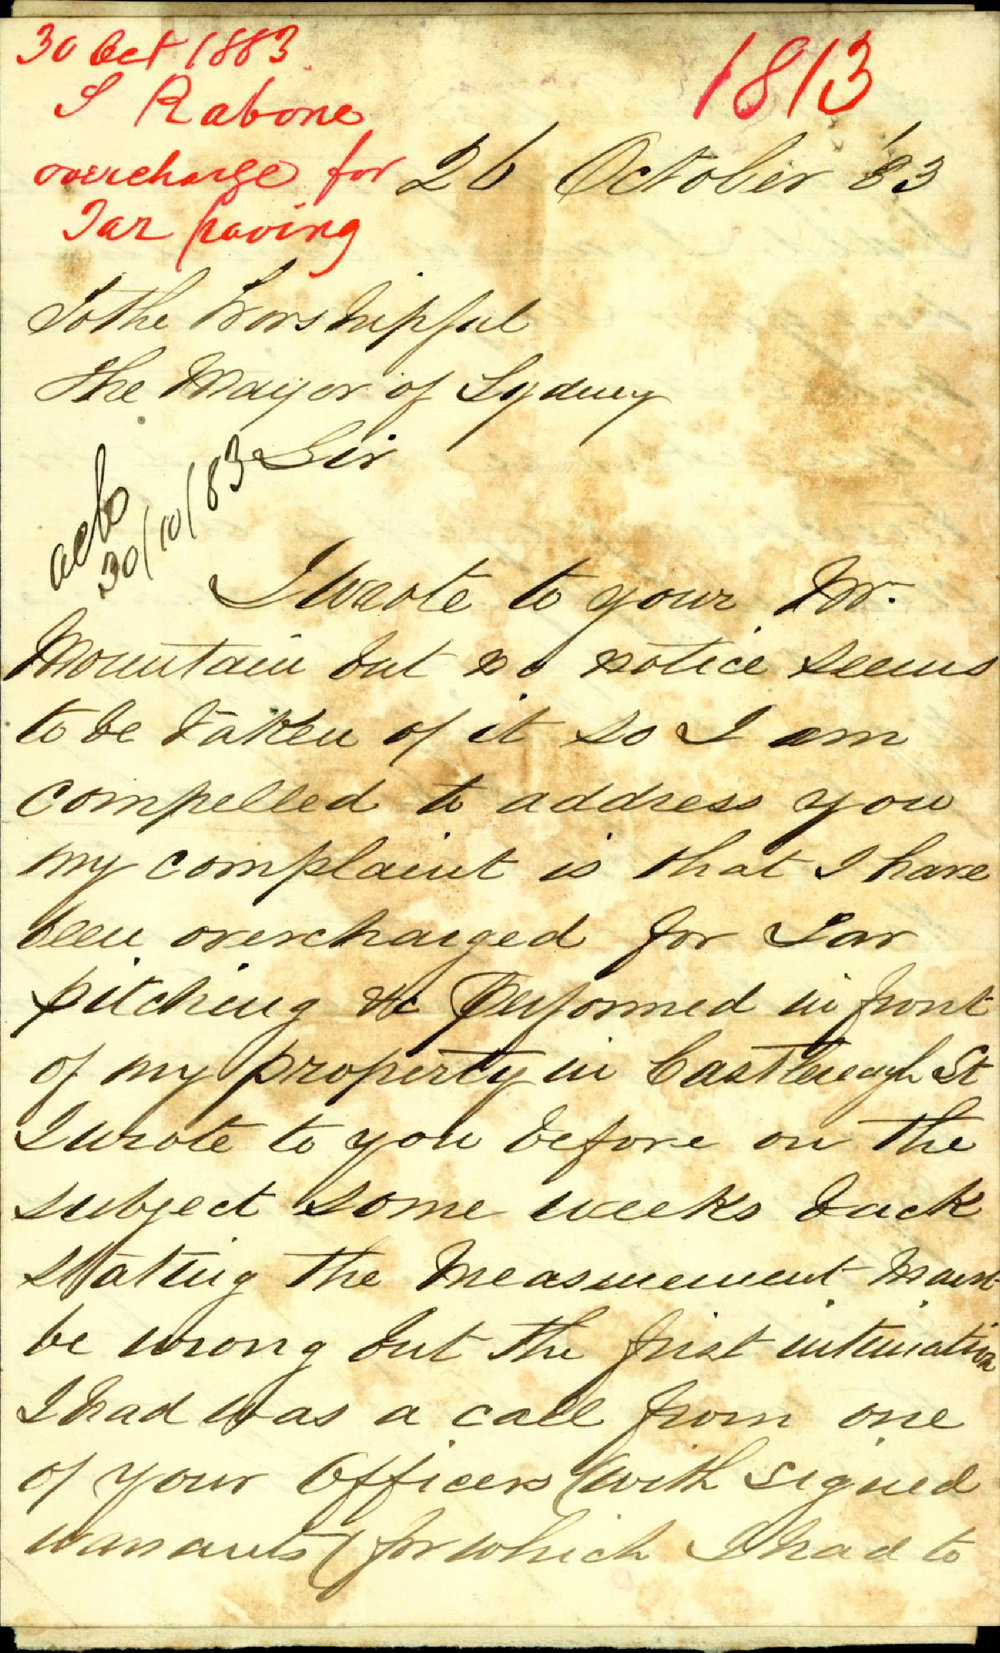 30 Oct 1883
S Rabone
overcharge for
Tar paving
1813
26 October '83
To the Worshipful
The Mayor of Sydney
Sir
30/10/83
I wrote to your Mr.
Mountain but no notice seems
to be taken of it so I am
compelled to address you
my complaint is that I have
been overcharged for Tar
pitching &c Performed in front
of my property in Castlereagh St
I wrote to you before on the
subject some weeks back
stating the Measurement Must
be wrong but the first intimation
I had was a call from one
of your Officers (with signed
warrants) for which I had to